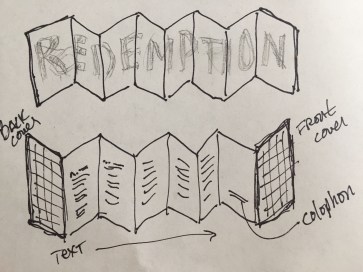 REDEMPTION
BACK
cover
FRONT
cover
TEXT
colophon